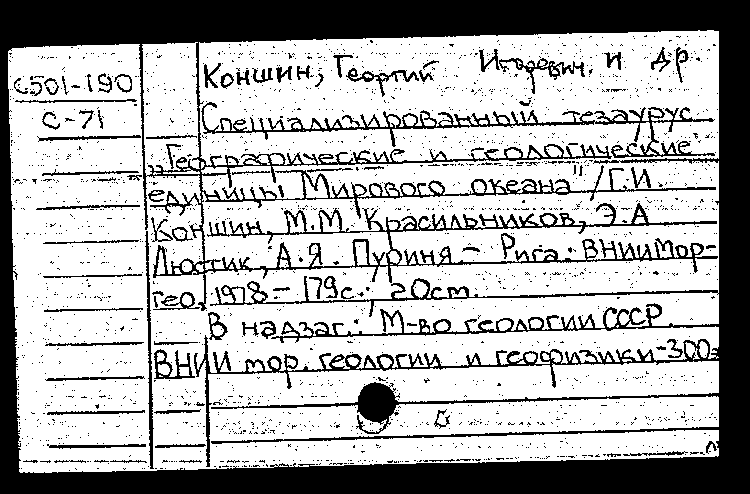 С501-190
С-71
Коншин, Георгий Игоревич. и др.
Специализированный тезаурус
„Географические и геологические
единицы Мирового океана" / Г.И.
Коншин, М.М. Красильников, Э.А
Люстик, А.Я. Пуриня. - Рига: ВНИИМор-
гео, 1978 - 179с.; 20см.
В надзаг.: М-во геологии СССР.
ВНИИ мор. геологии и геофизики - 300э